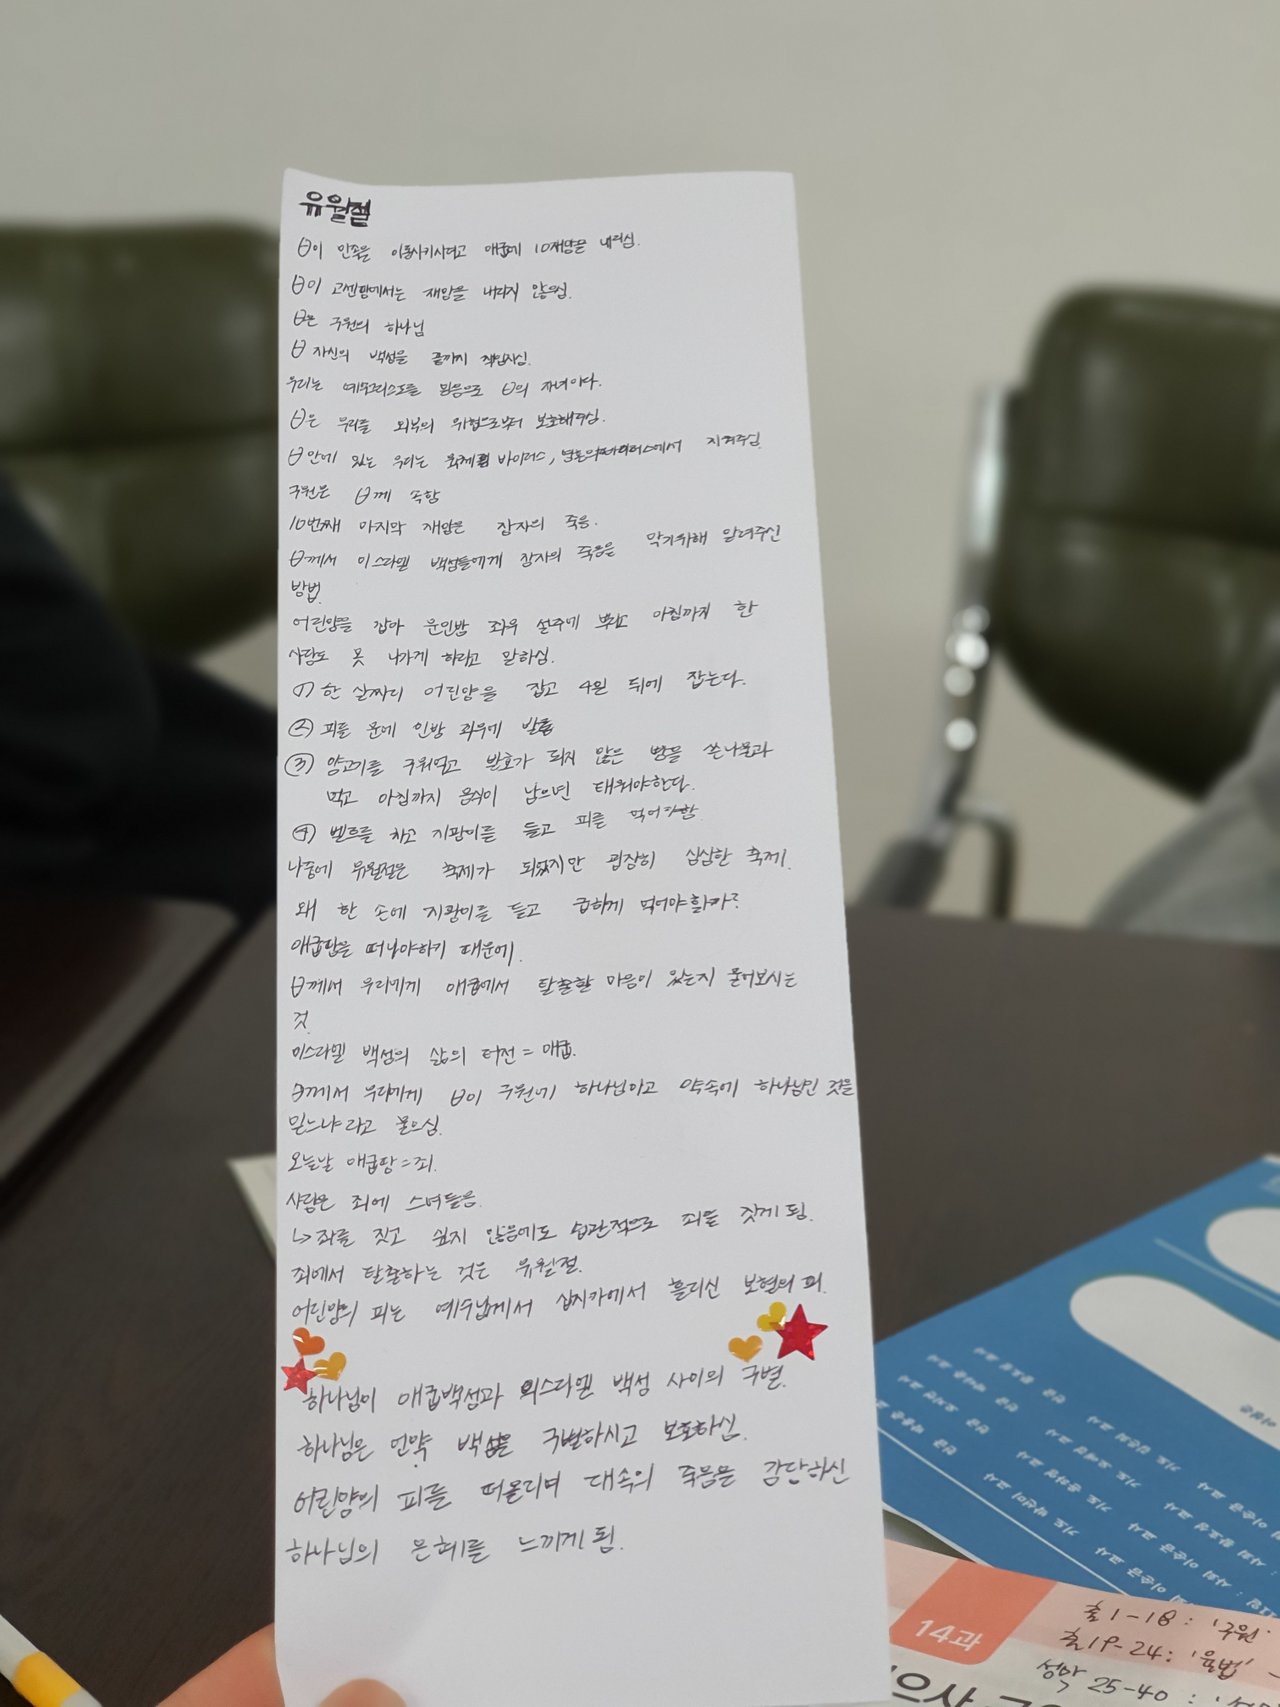 유월절
ㅂ이 민족을 이동사키시려고 애굽에 10재앙을 내리심.
ㅂ이 고센땅에서는 재앙을 내리지 않으심.
ㅂ은 구원의 하나님
ㅂ 자신의 백성을 끝까지 책임지심.
우리는 예수그리스도를 믿음으로 ㅂ의 자녀이다.
ㅂ은 우리를 외부의 위험으로부터 보호해주심.
ㅂ 안에 있는 우리는 바이러스, 지켜주심.
구원은 ㅂ께 속함
10번째 마지막 재앙은 장자의 죽음.
ㅂ께서 이스라엘 백성들에게 장자의 죽음을 막기위해 알려주신
방법.
어린양을 잡아 문인방 좌우 설주에 바르고 아침까지 한
사람도 못 나가게 하라고 말하심.
① 한 살짜리 어린양을 잡고 4일 뒤에 잡는다.
② 피를 문에 인방 좌우에 바름
③ 양고기를 구워먹고 발효가 되지 않은 빵을 쓴나물과
먹고 아침까지 음식이 남으면 태워야한다.
④ 벨트를 차고 지팡이를 들고 피를 먹어야함.
나중에 유월절은 축제가 되었지만 굉장히 심심한 축제.
왜 한 손에 지팡이를 들고 급하게 먹어야할까?
애굽땅을 떠나야하기 때문에.
ㅂ께서 우리에게 애굽에서 탈출할 마음이 있는지 물어보시는
것.
이스라엘 백성의 삶의 터전 = 애굽.
ㅂ께서 우리에게 ㅂ이 구원에 하나님이고 약속에 하나님인 것을
믿느냐라고 물으심.
오늘날 애굽땅=죄.
사람은 죄에 스며들음.
↳ 죄를 짓고 싶지 않음에도 습관적으로 죄를 짓게 됨.
죄에서 탈출하는 것은 유월절.
어린양의 피는 예수님께서 십자가에서 흘리신 보혈의 피.
하나님이 애굽백성과 이스라엘 백성 사이의 구별.
하나님은 언약 백성을 구별하시고 보호하심.
어린양의 피를 떠올리며 대속의 죽음을 감당하신
하나님의 은혜를 느끼게 됨.
14과
출1-18: '구원'
출19-24: '율법'
성막 25-40: